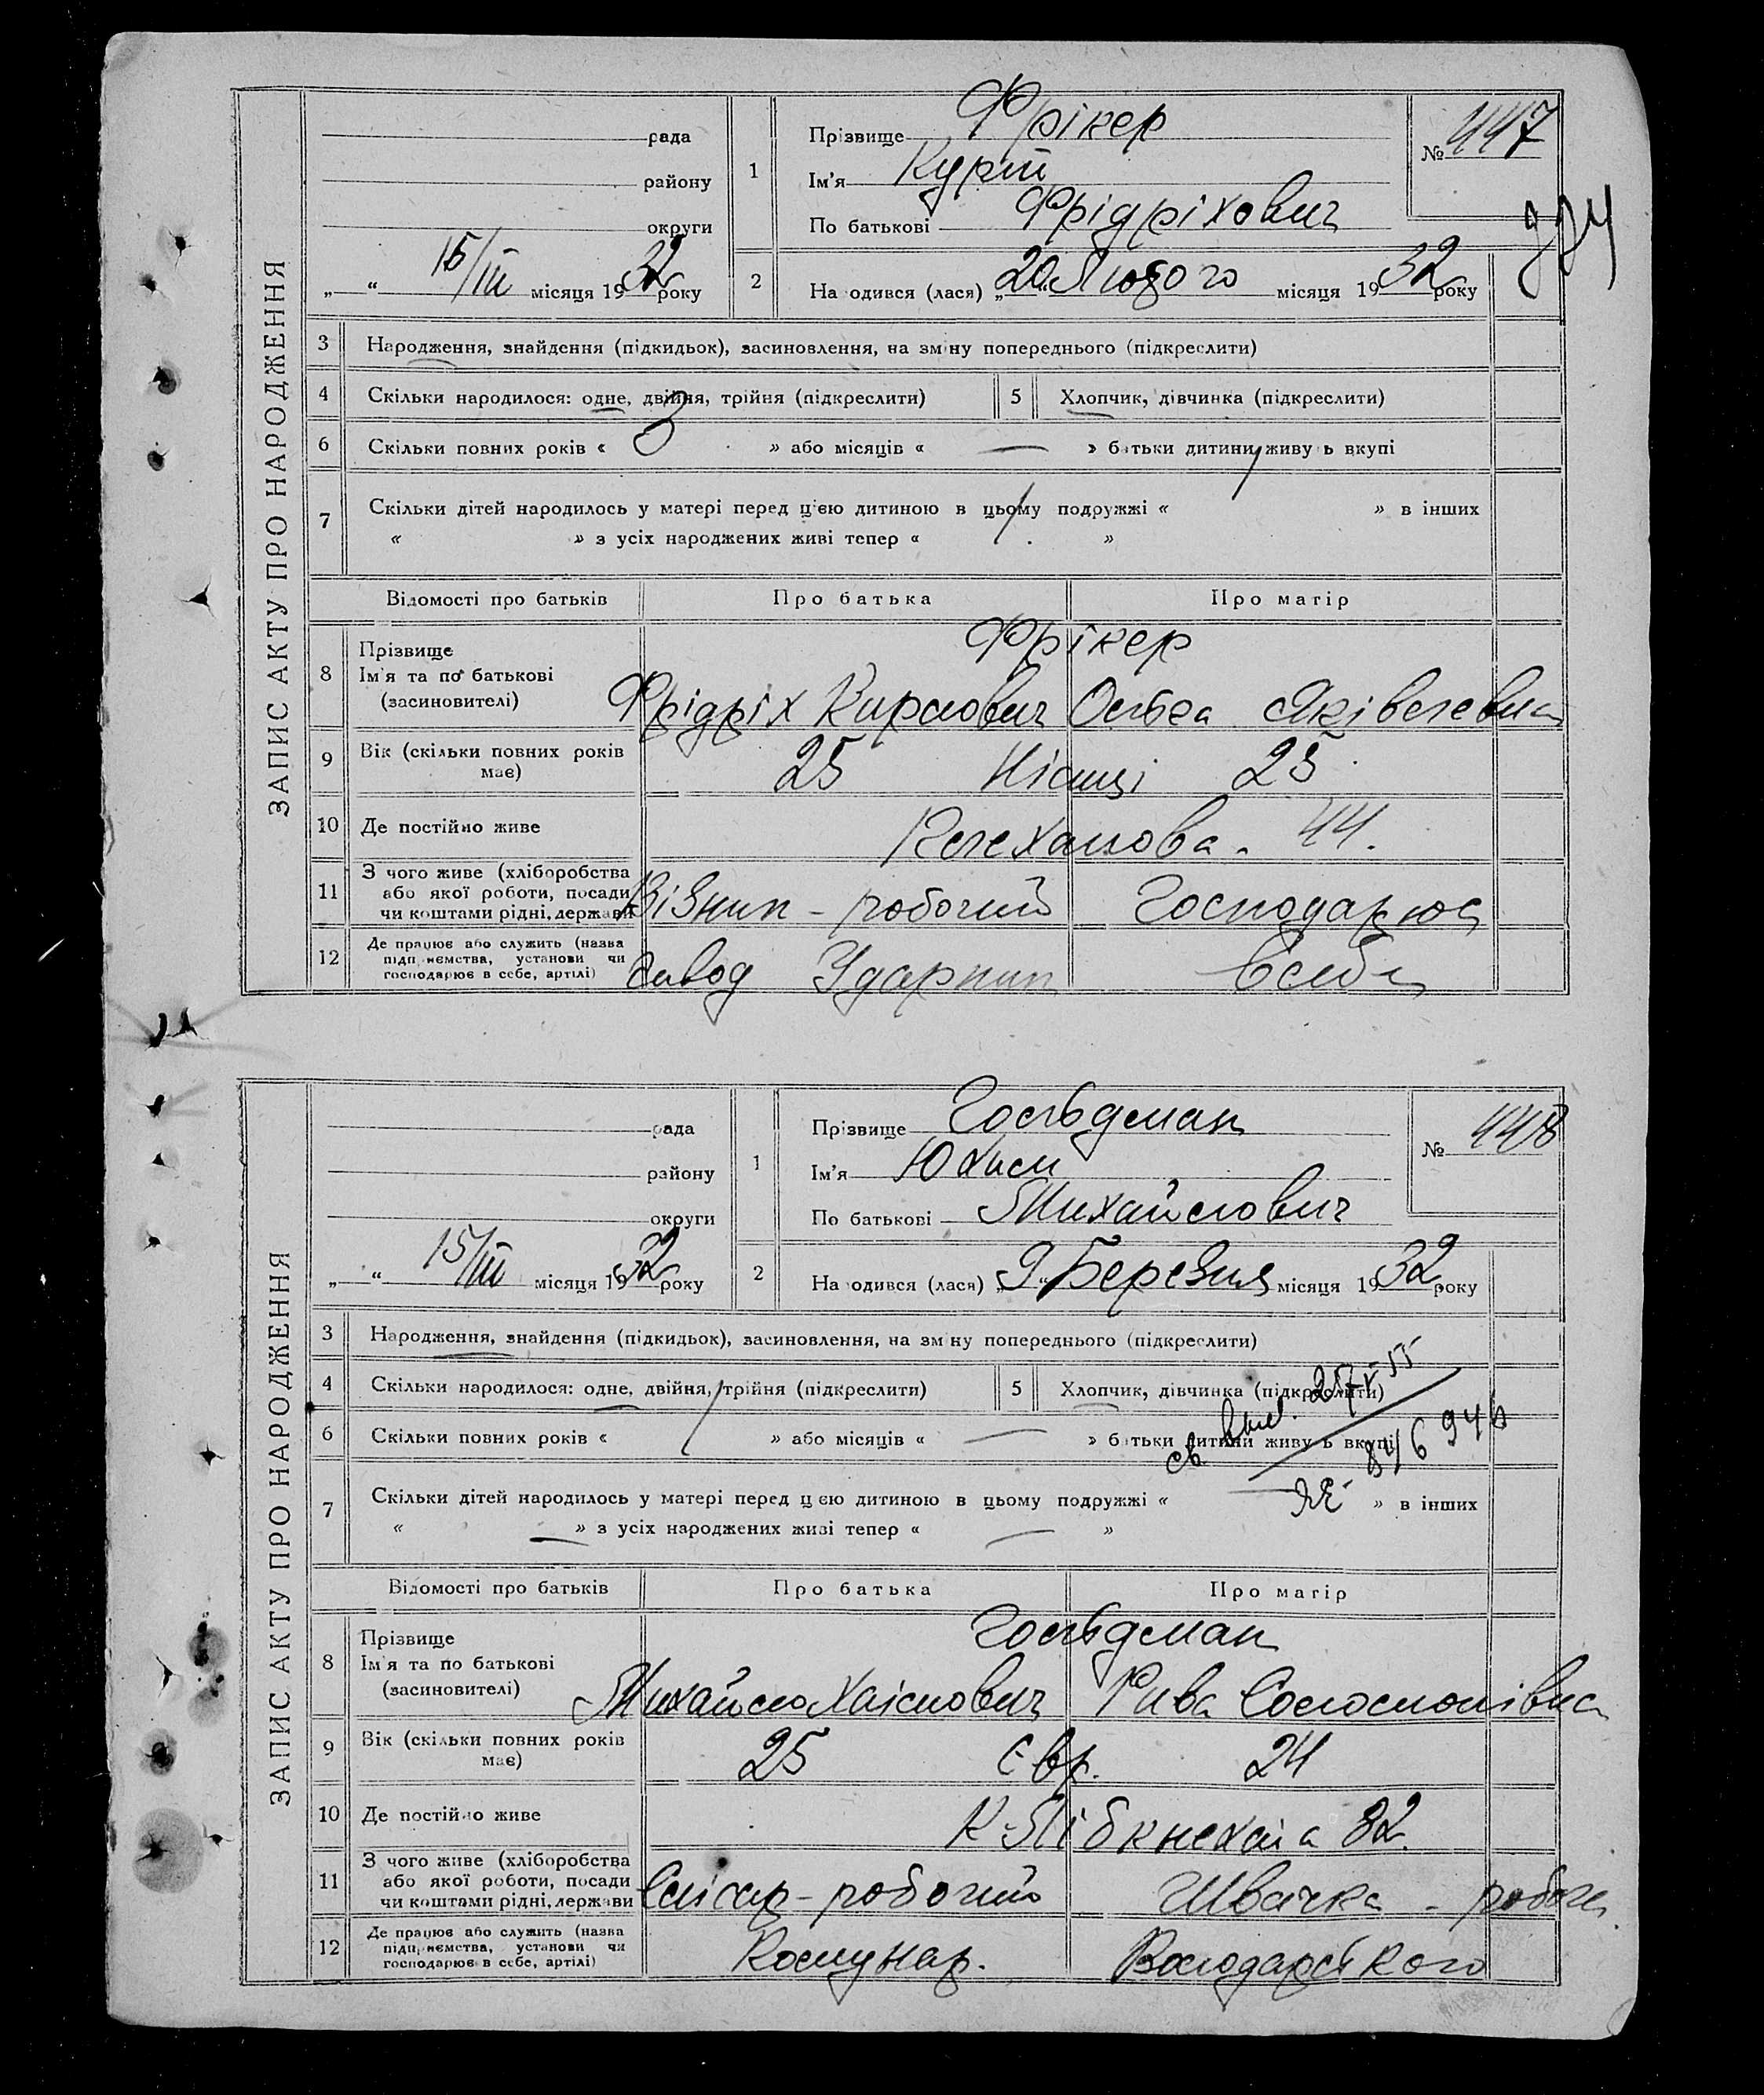 ЗАПИС АКТУ ПРО НАРОДЖЕННЯ
рада
району
округи
„ “ 15/III місяця 1932 року
1
Прізвище Фрікер
Ім'я Курт
По батькові Фрідріхович
№ 447
2
На одився (лася) „20“ Лютого місяця 1932 року
3 Народження, знайдення (підкидьок), засиновлення, на зміну попереднього (підкреслити)
4 Скільки народилося: одне, двійня, трійня (підкреслити)
5 Хлопчик, дівчинка (підкреслити)
6 Скільки повних років « 3 » або місяців « — » батьки дитини живуть вкупі
7 Скільки дітей народилось у матері перед цією дитиною в цьому подружжі « 1 » в інших
« » з усіх народжених живі тепер « 1 »
Відомості про батьків Про батька Про матір
8 Прізвище
Ім'я та по батькові
(засиновителі)
Фрікер
Фрідріх Карлович Ольга Яківлевна
9 Вік (скільки повних років має)
25 Німці 25
10 Де постійно живе
Плеханова. 44.
11 З чого живе (хліборобства або якої роботи, посади чи коштами рідні, держави
Візник - робочий Господарює
12 Де працює або служить (назва підприємства, установи чи господарює в себе, артілі)
Завод Ударник в себе
ЗАПИС АКТУ ПРО НАРОДЖЕННЯ
рада
району
округи
„ “ 15/III місяця 1932 року
1
Прізвище Гольдман
Ім'я Юхим
По батькові Михайлович
№ 448
2
На одився (лася) „9“ Березня місяця 1932 року
3 Народження, знайдення (підкидьок), засиновлення, на зміну попереднього (підкреслити)
4 Скільки народилося: одне, двійня, трійня (підкреслити)
5 Хлопчик, дівчинка (підкреслити)
6 Скільки повних років « 1 » або місяців « — » батьки дитини живуть вкупі
7 Скільки дітей народилось у матері перед цією дитиною в цьому подружжі « — » в інших
« — » з усіх народжених живі тепер « — »
Відомості про батьків Про батька Про матір
8 Прізвище
Ім'я та по батькові
(засиновителі)
Гольдман
Михайло Хаімович Рива Соломонівна
9 Вік (скільки повних років має)
25 Євр. 24
10 Де постійно живе
К-Лібкнехта 82.
11 З чого живе (хліборобства або якої роботи, посади чи коштами рідні, держави
Слісар - робочий Швачка - робоч.
12 Де працює або служить (назва підприємства, установи чи господарює в себе, артілі)
Комунар. Володарського